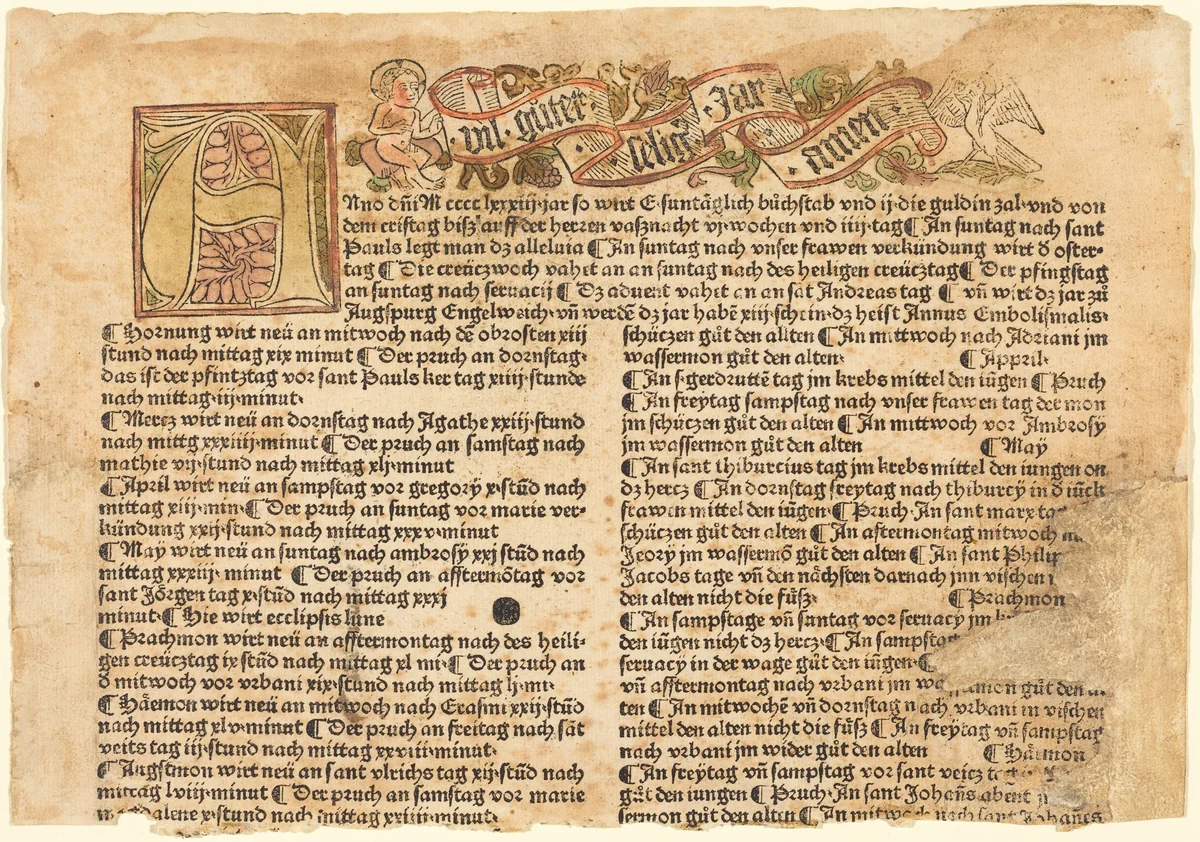 vil · gůter · selig · Jar · amen
ANno dñi M cccc lxxxiij · jar so wirt E · suntäglich bůchstab vnd ij · die guldin zal · vnd von
dem cristag bisz auff der herren vasznacht vj · wochen vnd iiij · tag ¶ An suntag nach sant
Pauls legt man dz alleluia ¶ An suntag nach vnser frawen verkündung wirt d oster-
tag ¶ Die creüczwoch vahet an an suntag nach des heiligen creücztag ¶ Der pfingstag
an suntag nach seruacij ¶ Dz aduent vahet an an sāt Andreas tag ¶ vñ wirt dz jar zů
Augspurg Engelweich · vñ werdē dz jar habē xiij · schein · dz heist Annus Embolismalis ·
¶ Hornung wirt neü an mitwoch nach dē obrosten xiij
stund nach mittag xix minut ¶ Der pruch an dornstag ·
das ist der pfintztag vor sant Pauls ker tag xiiij · stunde
nach mittag · iij · minut ·
¶ Mercz wirt neü an dornstag nach Agathe xxiij · stund
nach mittg xxxiiij · minut ¶ Der pruch an samstag nach
mathie vij · stund nach mittag xlj · minut
¶ April wirt neü an sampstag vor gregorÿ x · stūd nach
mittag xiij · min · ¶ Der pruch an suntag vor marie ver-
kündung xxij · stund nach mittag xxxv · minut
¶ Maÿ wirt neü an suntag nach ambrosÿ xxj stūd nach
mittag xxxiij · minut ¶ Der pruch an afftermōtag vor
sant Jörgen tag x · stūd nach mittag xxxj
minut · ¶ Hie wirt ecclipsis lune
¶ Prachmon wirt neü an afftermontag nach des heili-
gen creücztag ix stūd nach mittag xl mi · ¶ Der pruch an
d mitwoch vor vrbani xix · stund nach mittag lj · mi ·
¶ Häemon wirt neü an mitwoch nach Erasmi xxij · stūd
nach mittag xlv · minut ¶ Der pruch an freitag nach sāt
veits tag iij · stund nach mittag xxviii · minut ·
¶ Augstmon wirt neü an sant vlrichs tag xij · stūd nach
mittag lviij · minut ¶ Der pruch an samstag vor marie
x · stund nach mittag xxiiii · minut ·
schüczen gůt den allten ¶ An mittwoch nach Adriani jm
wassermon gůt den alten · ¶ Appril ·
¶ An s · gerdruttē tag jm krebs mittel den iügen ¶ Pruch
¶ An freytag sampstag nach vnser frawen tag der mon
jm schüczen gůt den alten ¶ An mittwoch vor Ambrosÿ
jm wassermon gůt den alten ¶ Maÿ
¶ An sant thiburcius tag jm krebs mittel den iungen on
dz hercz ¶ An dornstag freytag nach thiburcÿ in d iück
frawen mittel den iügen ¶ Pruch · An sant marx
schüczen gůt den alten ¶ An aftermontag mitwoch
Jeorÿ jm wassermō gůt den alten ¶ An sant
Jacobs tage vñ den nächsten darnach jnn vischen
den alten nicht die füsz · ¶ Prachmon
¶ An sampstage vñ suntag vor seruacÿ jm
den iügen nicht dz hercz · ¶ An
seruacÿ in der wage gůt den iügen · ¶
vñ afftermontag nach vrbani jm gůt den
ten ¶ An mitwochē vñ dornstag nach vrbani in vischen
mittel den alten nicht die füsz ¶ An freÿtag vñ sampstag
nach vrbani jm wider gůt den alten ¶ Häemon
¶ An freÿtag vñ sampstag vor sant
gůt den iungen ¶ Pruch · An sant Johañs abent
gůt den alten ¶ An mitwoch nach sant Johañes